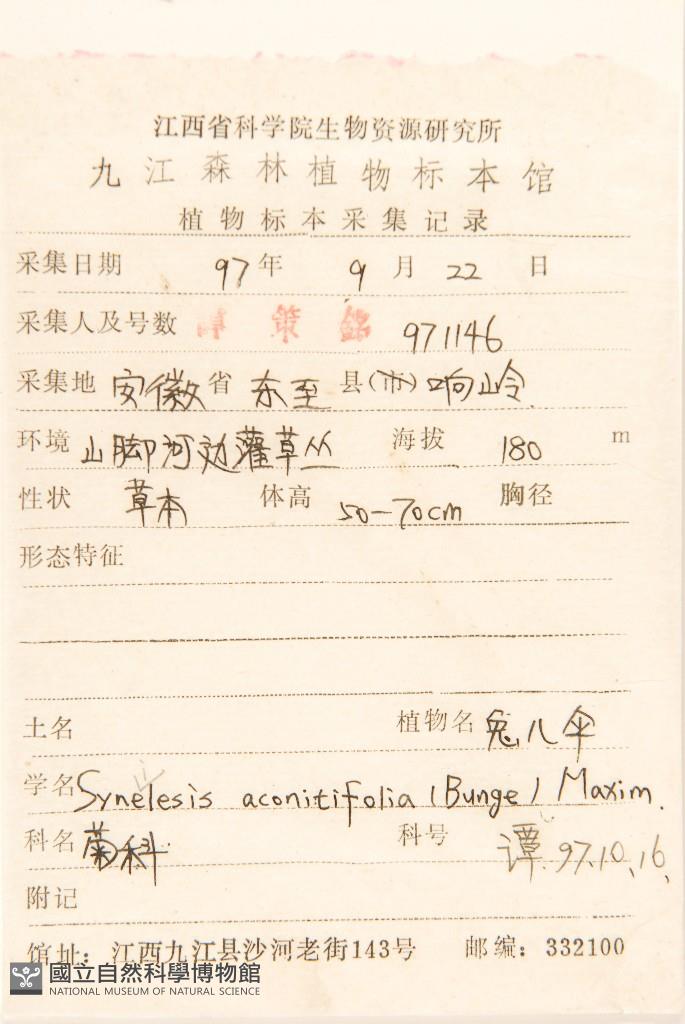 江西省科学院生物资源研究所
九江森林植物标本馆
植物标本采集记录
采集日期 97年 9月 22日
采集人及号数 策 971146
采集地 安徽省 东至县(市)响岭
环境 山脚河边灌草丛 海拔 180 m
性状 草本 体高 50-70cm 胸径
形态特征
土名 植物名 兔儿伞
学名 Synelesis aconitifolia (Bunge) Maxim.
科名 菊科 科号 谭 97.10.16.
附记
馆址: 江西九江县沙河老街143号 邮编: 332100
國立自然科學博物館
NATIONAL MUSEUM OF NATURAL SCIENCE